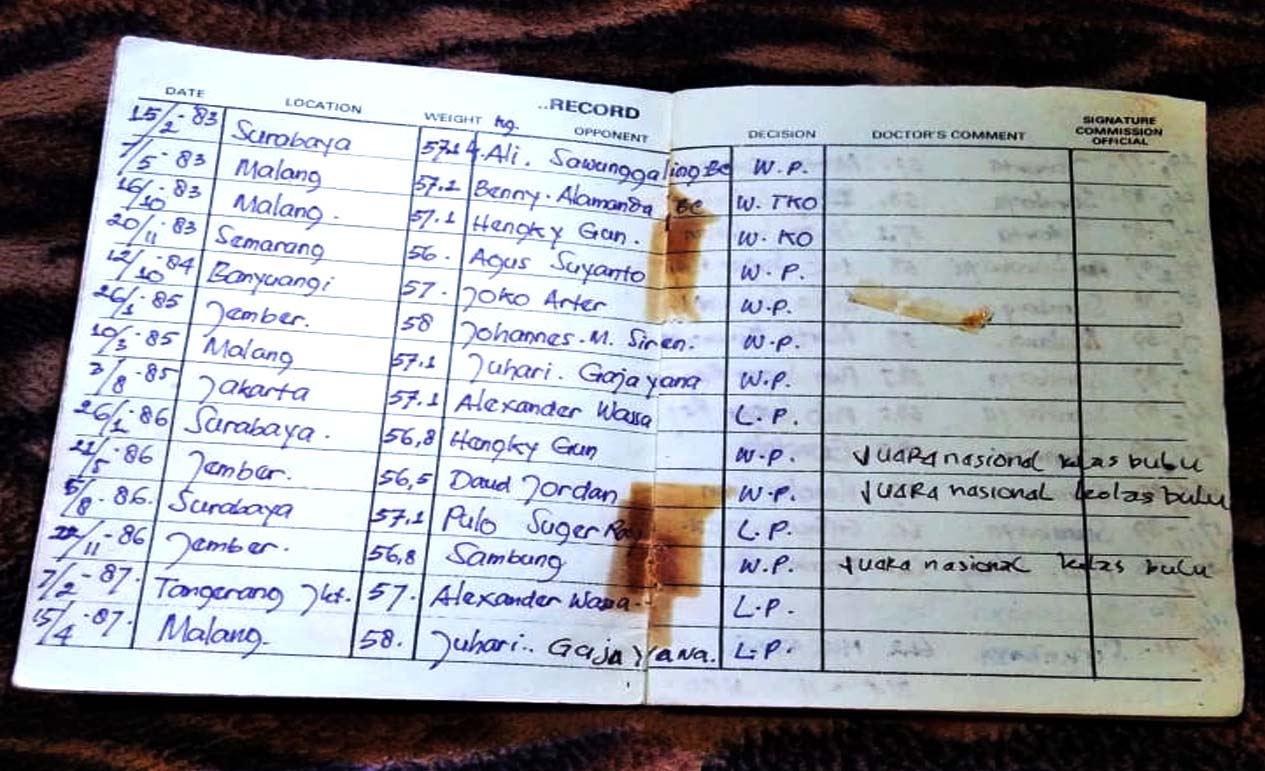 ..RECORD
DATE LOCATION WEIGHT kg. OPPONENT DECISION DOCTOR'S COMMENT SIGNATURE COMMISSION OFFICIAL
15/2-83 Surabaya 57.1 Ali. Sawunggaling BC W.P.
7/5-83 Malang 57.1 Benny. Alamanda BC W. TKO
16/10-83 Malang. 57.1 Hengky Gun. W. KO
20/11-83 Semarang 56. Agus Suyanto W.P.
12/10-84 Banyuangi 57. Joko Arter W.P.
26/1-85 Jember. 58 Johannes. M. Siren. W.P.
10/3-85 Malang 57.1 Juhari. Gajayana W.P.
3/8-85 Jakarta 57.1 Alexander Wassa L.P.
26/1-86 Surabaya. 56,8 Hengky Gun W.P. JUARA nasional kelas bulu
/5-86 Jember. 56,5 Daud Jordan W.P. JUARA nasional kelas bulu
5/8-86. Surabaya 57,1 Pulo Suger L.P.
/11-86 Jember. 56,8 Sambung W.P. JUARA nasional kelas bulu
7/2-87. Tangerang Jkt. 57. Alexander Wassa. L.P.
15/4-87. Malang. 58. Juhari.. Gajayana. L.P.